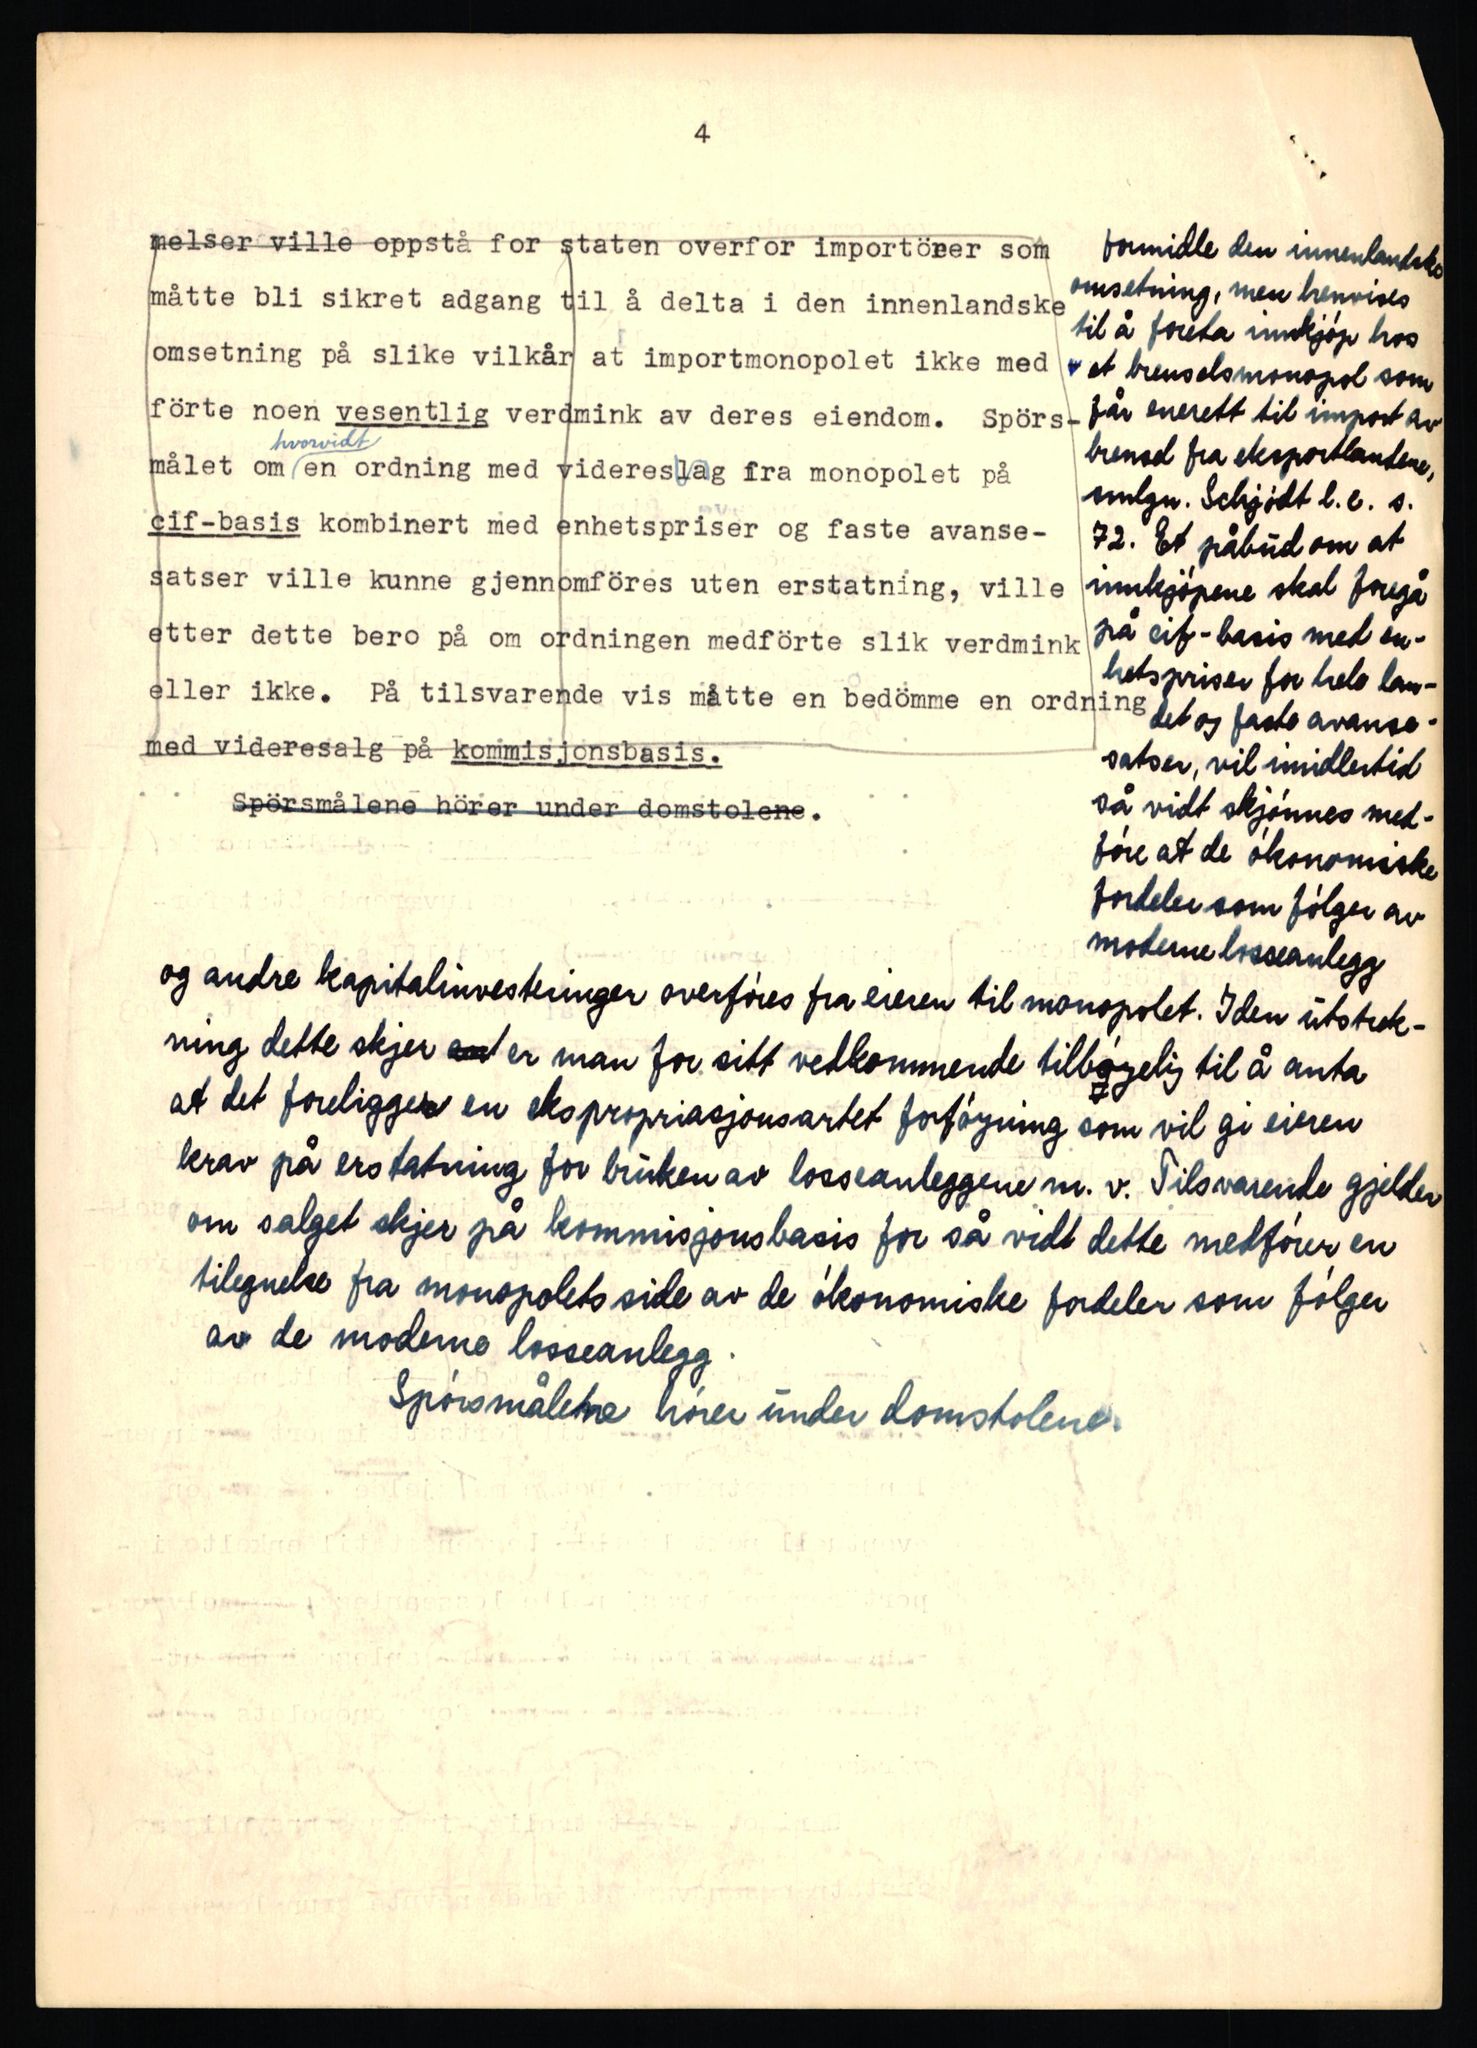 4
melser ville oppstå for staten overfor importörer som
måtte bli sikret adgang til å delta i den innenlandske
omsetning på slike vilkår at importmonopolet ikke med
förte noen vesentlig verdmink av deres eiendom. Spörs-
hvorvidt
målet om en ordning med videreslag fra monopolet på
cif-basis kombinert med enhetspriser og faste avanse-
satser ville kunne gjennomföres uten erstatning, ville
etter dette bero på om ordningen medförte slik verdmink
eller ikke. På tilsvarende vis måtte en bedömme en ordning
med videresalg på kommisjonsbasis.
Spörsmålene hörer under domstolene.
formidle den innenlandske
omsetning, men henvises
til å foreta innkjöp hos
et brenselsmonopol som
får enerett til import av
brensel fra eksportlandene,
smlgn. Schjödt l.c. s.
72. Et påbud om at
innkjöpene skal foregå
på cif-basis med en-
hetspriser for hele lan-
det og faste avanse-
satser, vil imidlertid
så vidt skjönnes med-
före at de ökonomiske
fordeler som fölger av
moderne losseanlegg
og andre kapitalinvesteringer overföres fra eieren til monopolet. I den utstrek-
ning dette skjer er man for sitt vedkommende tilböyelig til å anta
at det foreligger en ekspropriasjonsartet forföyning som vil gi eieren
krav på erstatning for bruken av losseanleggene m. v. Tilsvarende gjelder
om salget skjer på kommisjonsbasis for så vidt dette medförer en
tilegnelse fra monopolets side av de ökonomiske fordeler som fölger
av de moderne losseanlegg.
Spörsmålene hörer under domstolene.